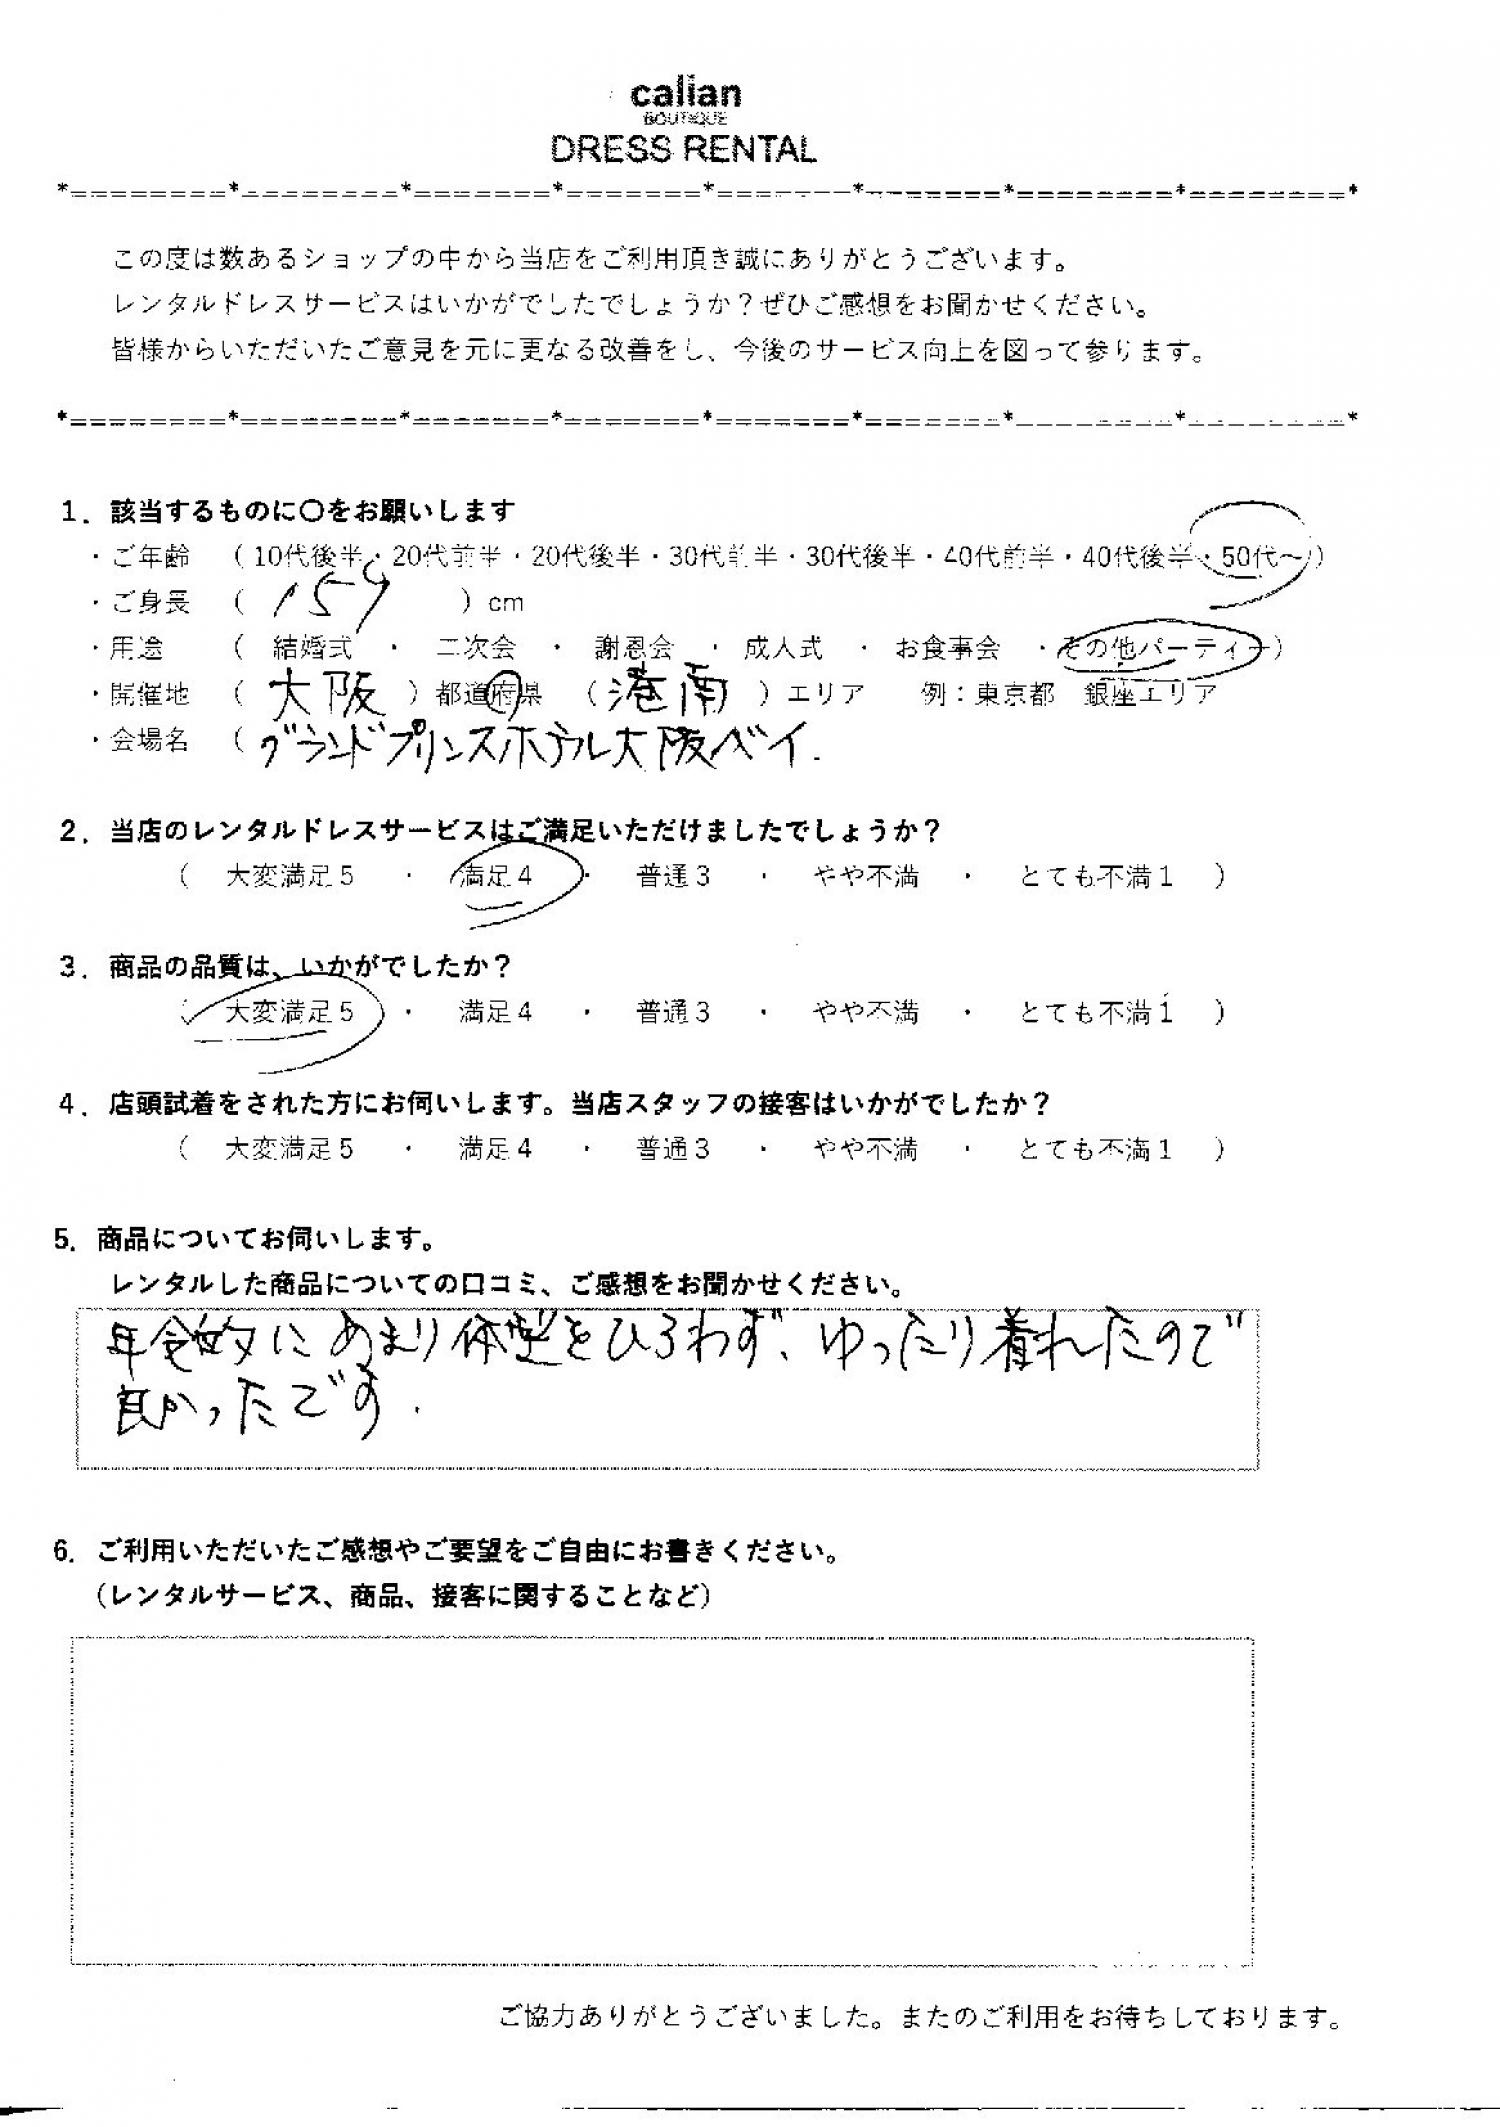 calian
BOUTIQUE
DRESS RENTAL
*========*========*=======*=======*=======*=======*========*========*
この度は数あるショップの中から当店をご利用頂き誠にありがとうございます。
レンタルドレスサービスはいかがでしたでしょうか？ぜひご感想をお聞かせください。
皆様からいただいたご意見を元に更なる改善をし、今後のサービス向上を図って参ります。
*========*========*=======*=======*=======*=======*========*========*
1．該当するものに〇をお願いします
・ご年齢 （10代後半・20代前半・20代後半・30代前半・30代後半・40代前半・40代後半・50代～）
・ご身長 （ 159 ）cm
・用途 （ 結婚式 ・ 二次会 ・ 謝恩会 ・ 成人式 ・ お食事会 ・その他パーティー）
・開催地 （ 大阪 ）都道府県 （ 港南 ）エリア 例：東京都 銀座エリア
・会場名 （ グランドプリンスホテル大阪ベイ.
2．当店のレンタルドレスサービスはご満足いただけましたでしょうか？
（ 大変満足5 ・ 満足4 ・ 普通3 ・ やや不満 ・ とても不満1 ）
3．商品の品質は、いかがでしたか？
（ 大変満足5 ・ 満足4 ・ 普通3 ・ やや不満 ・ とても不満1 ）
4．店頭試着をされた方にお伺いします。当店スタッフの接客はいかがでしたか？
（ 大変満足5 ・ 満足4 ・ 普通3 ・ やや不満 ・ とても不満1 ）
5．商品についてお伺いします。
レンタルした商品についての口コミ、ご感想をお聞かせください。
年令的にあまり体型をひろわず、ゆったり着れたので
良かったです.
6．ご利用いただいたご感想やご要望をご自由にお書きください。
（レンタルサービス、商品、接客に関することなど）
ご協力ありがとうございました。またのご利用をお待ちしております。